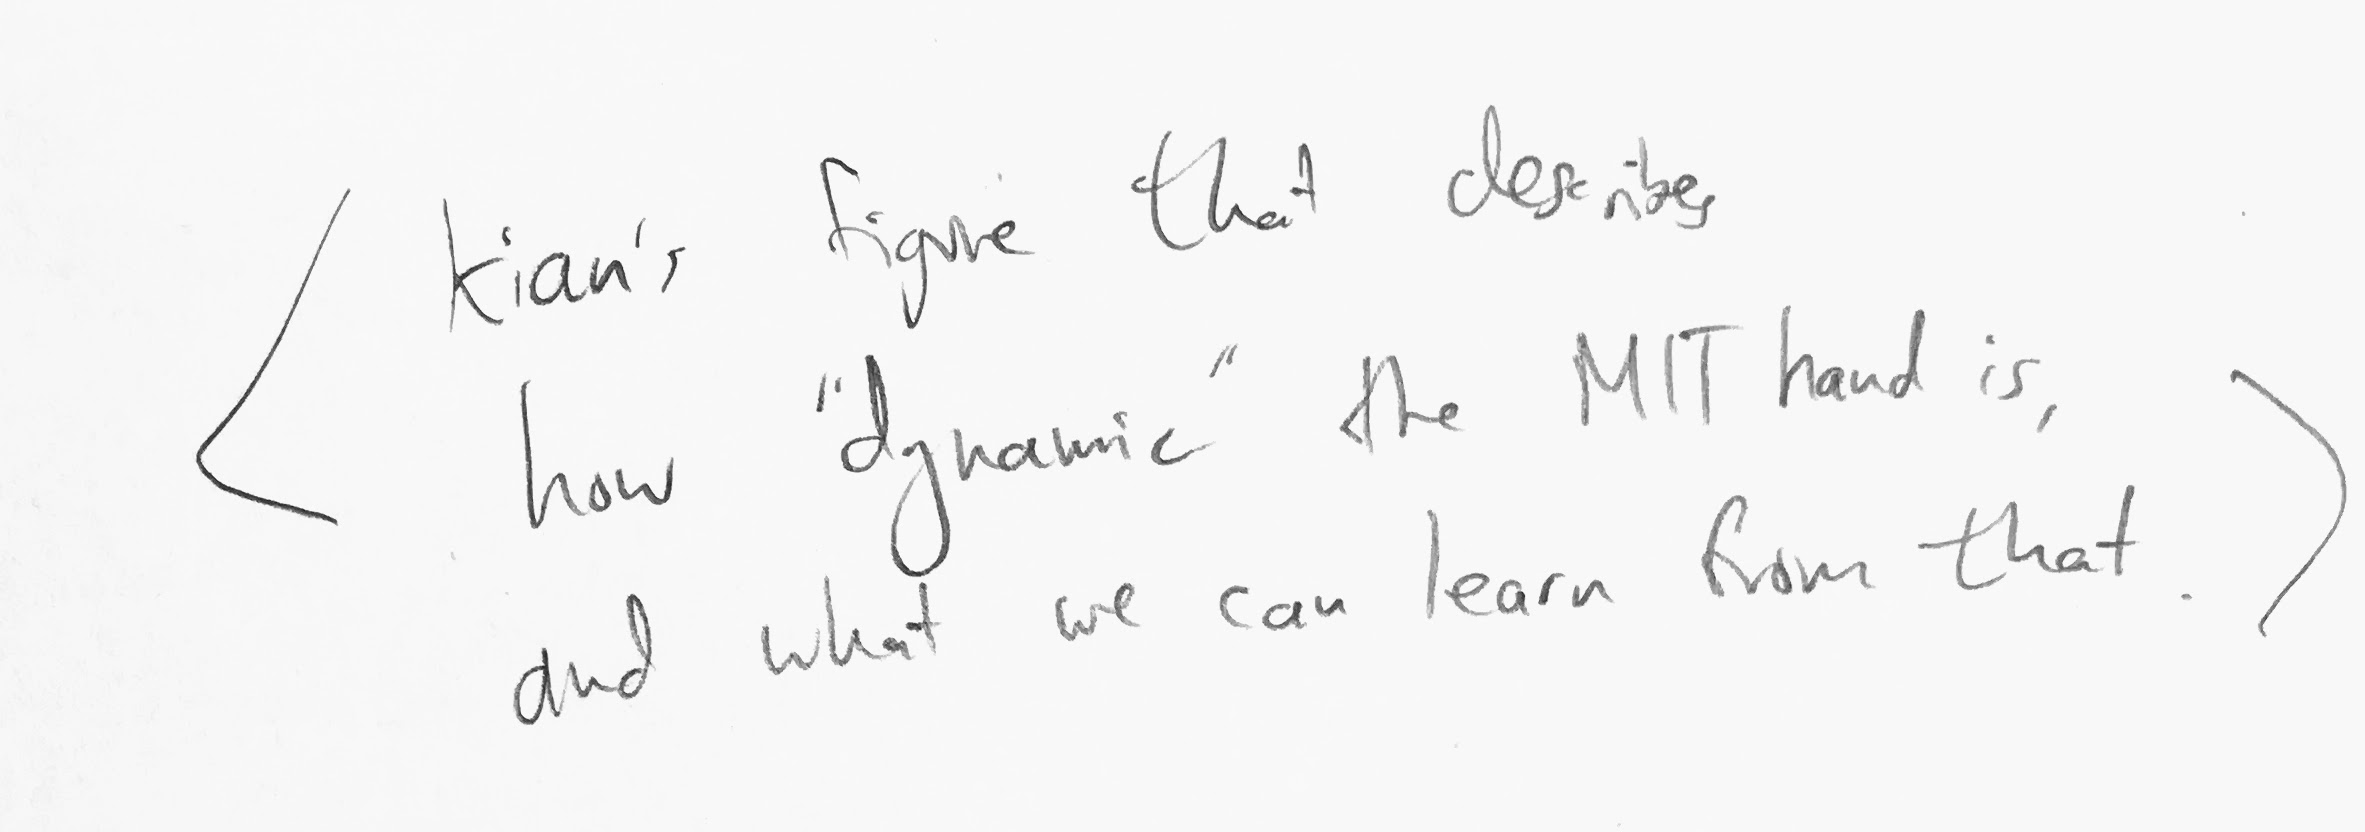 < Kian's figure that describes
how "dynamic" the MIT hand is,
and what we can learn from that. >